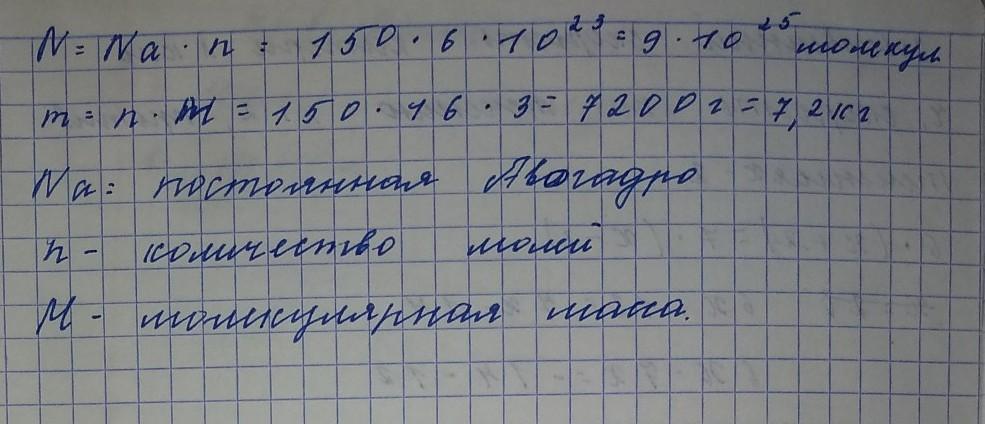 N = Na · n = 150 · 6 · 10²³ = 9 · 10²⁵ молекул
m = n · M = 150 · 16 · 3 = 7200 г = 7,2 кг
Na = постоянная Авогадро
n - количество молей
M - молекулярная масса.